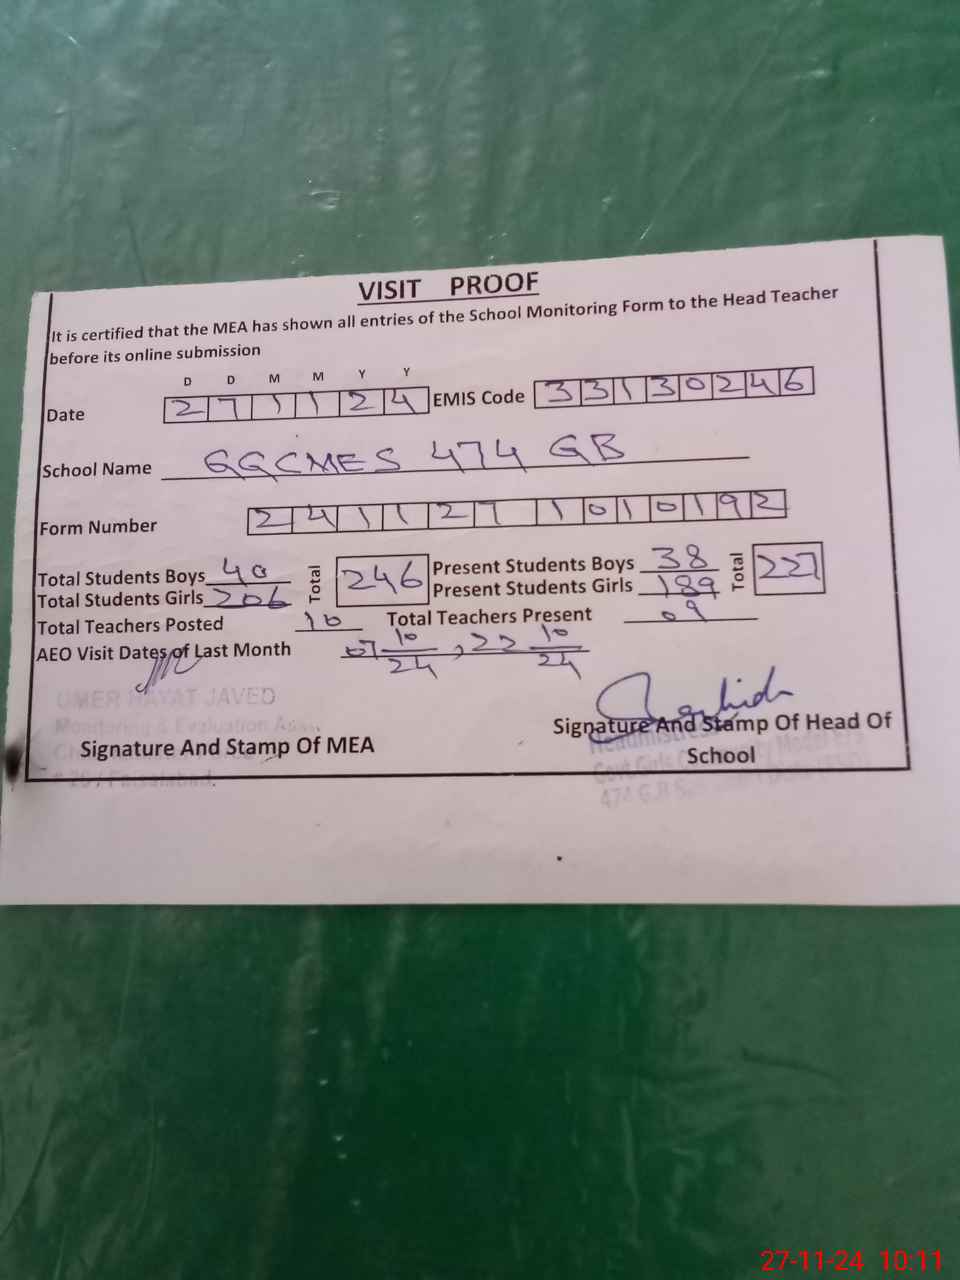 VISIT PROOF
It is certified that the MEA has shown all entries of the School Monitoring Form to the Head Teacher
before its online submission
D D M M Y Y
Date 2 7 1 1 2 4 EMIS Code 3 3 1 3 0 2 4 6
School Name GGCMES 474 GB
Form Number 2 4 1 1 2 7 1 0 1 0 1 9 2
Total Students Boys 40 Total 246 Present Students Boys 38 Total 227
Total Students Girls 206 Present Students Girls 189
Total Teachers Posted 10 Total Teachers Present 09
AEO Visit Dates of Last Month 07 10/24, 22 10/24
UMER HAYAT JAVED
Monitoring & Evaluation
Signature And Stamp Of MEA
Signature And Stamp Of Head Of
School
Headmistress
Govt Girls Community Model
474 G.B
Faisalabad.
27-11-24 10:11